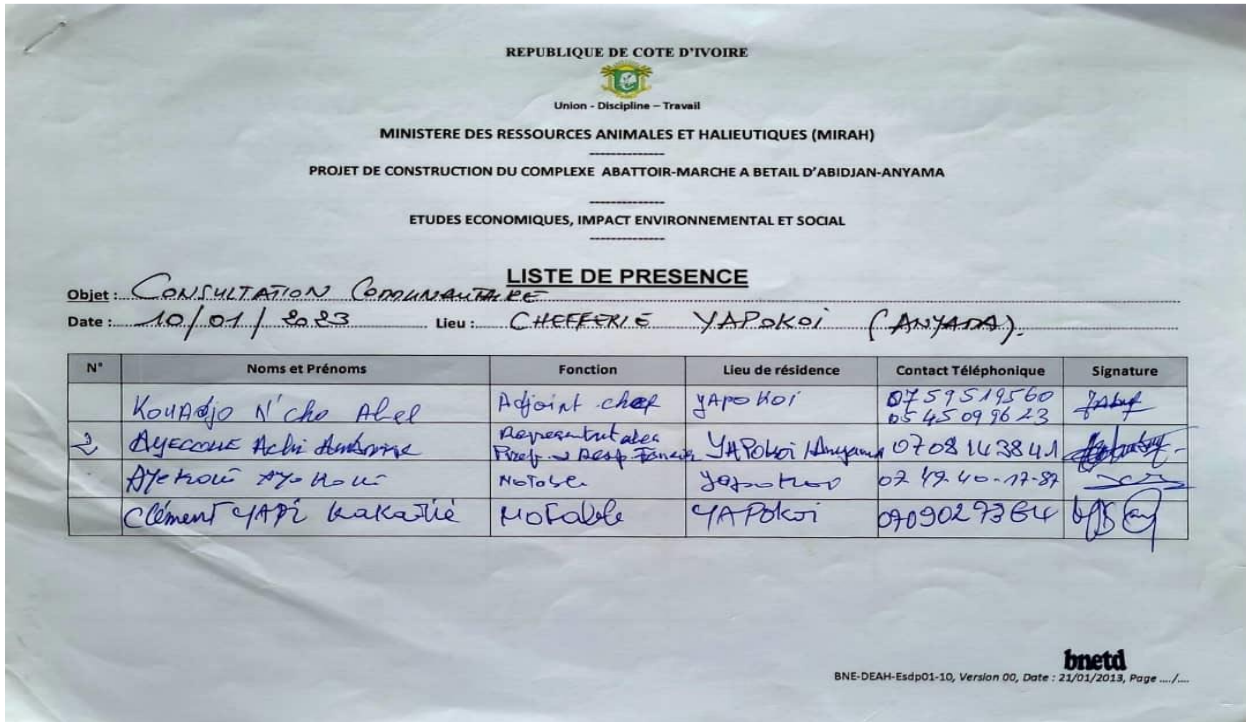 REPUBLIQUE DE COTE D'IVOIRE
Union - Discipline – Travail
MINISTERE DES RESSOURCES ANIMALES ET HALIEUTIQUES (MIRAH)
--------------
PROJET DE CONSTRUCTION DU COMPLEXE ABATTOIR-MARCHE A BETAIL D'ABIDJAN-ANYAMA
--------------
ETUDES ECONOMIQUES, IMPACT ENVIRONNEMENTAL ET SOCIAL
--------------
LISTE DE PRESENCE
Objet : CONSULTATION COMMUNAUTAIRE
Date : 10/01/2023 Lieu : CHEFFERIE YAPOKOI (ANYAMA).
N° Noms et Prénoms Fonction Lieu de résidence Contact Téléphonique Signature
KOUAdjo N'cho Abel Adjoint chef YAPOKOI 0759519560
0545099623
2 Achi YAPOKOI Anyama 0708143841
Notable 07 49-40-17-87
Clément YAPI Notable YAPOKOI 0709029364
bnetd
BNE-DEAH-Esdp01-10, Version 00, Date : 21/01/2013, Page ..../....